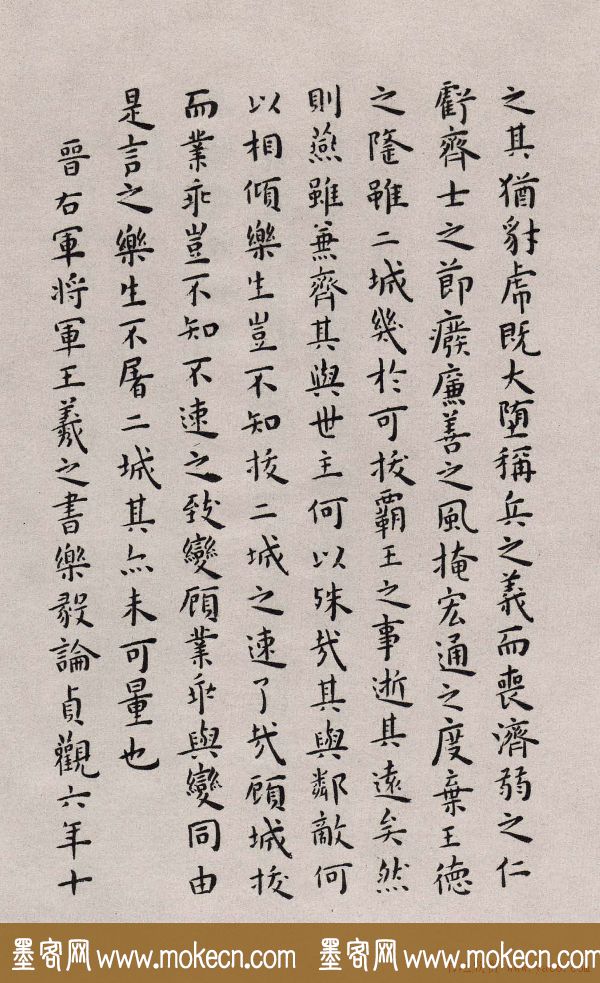 之其猶豺虎既大堕稱兵之義而喪濟弱之仁
虧齊士之節癈廉善之風掩宏通之度棄王德
之隆雖二城幾於可拔霸王之事逝其遠矣然
則燕雖兼齊其與世主何以殊㢤其與鄰敵何
以相傾樂生豈不知拔二城之速了㢤顧城拔
而業乖豈不知不速之致變顧業乖與變同由
是言之樂生不屠二城其亦未可量也
晉右軍將軍王羲之書樂毅論貞觀六年十
墨客网 www.mokecn.com 墨客网 www.mokecn.com